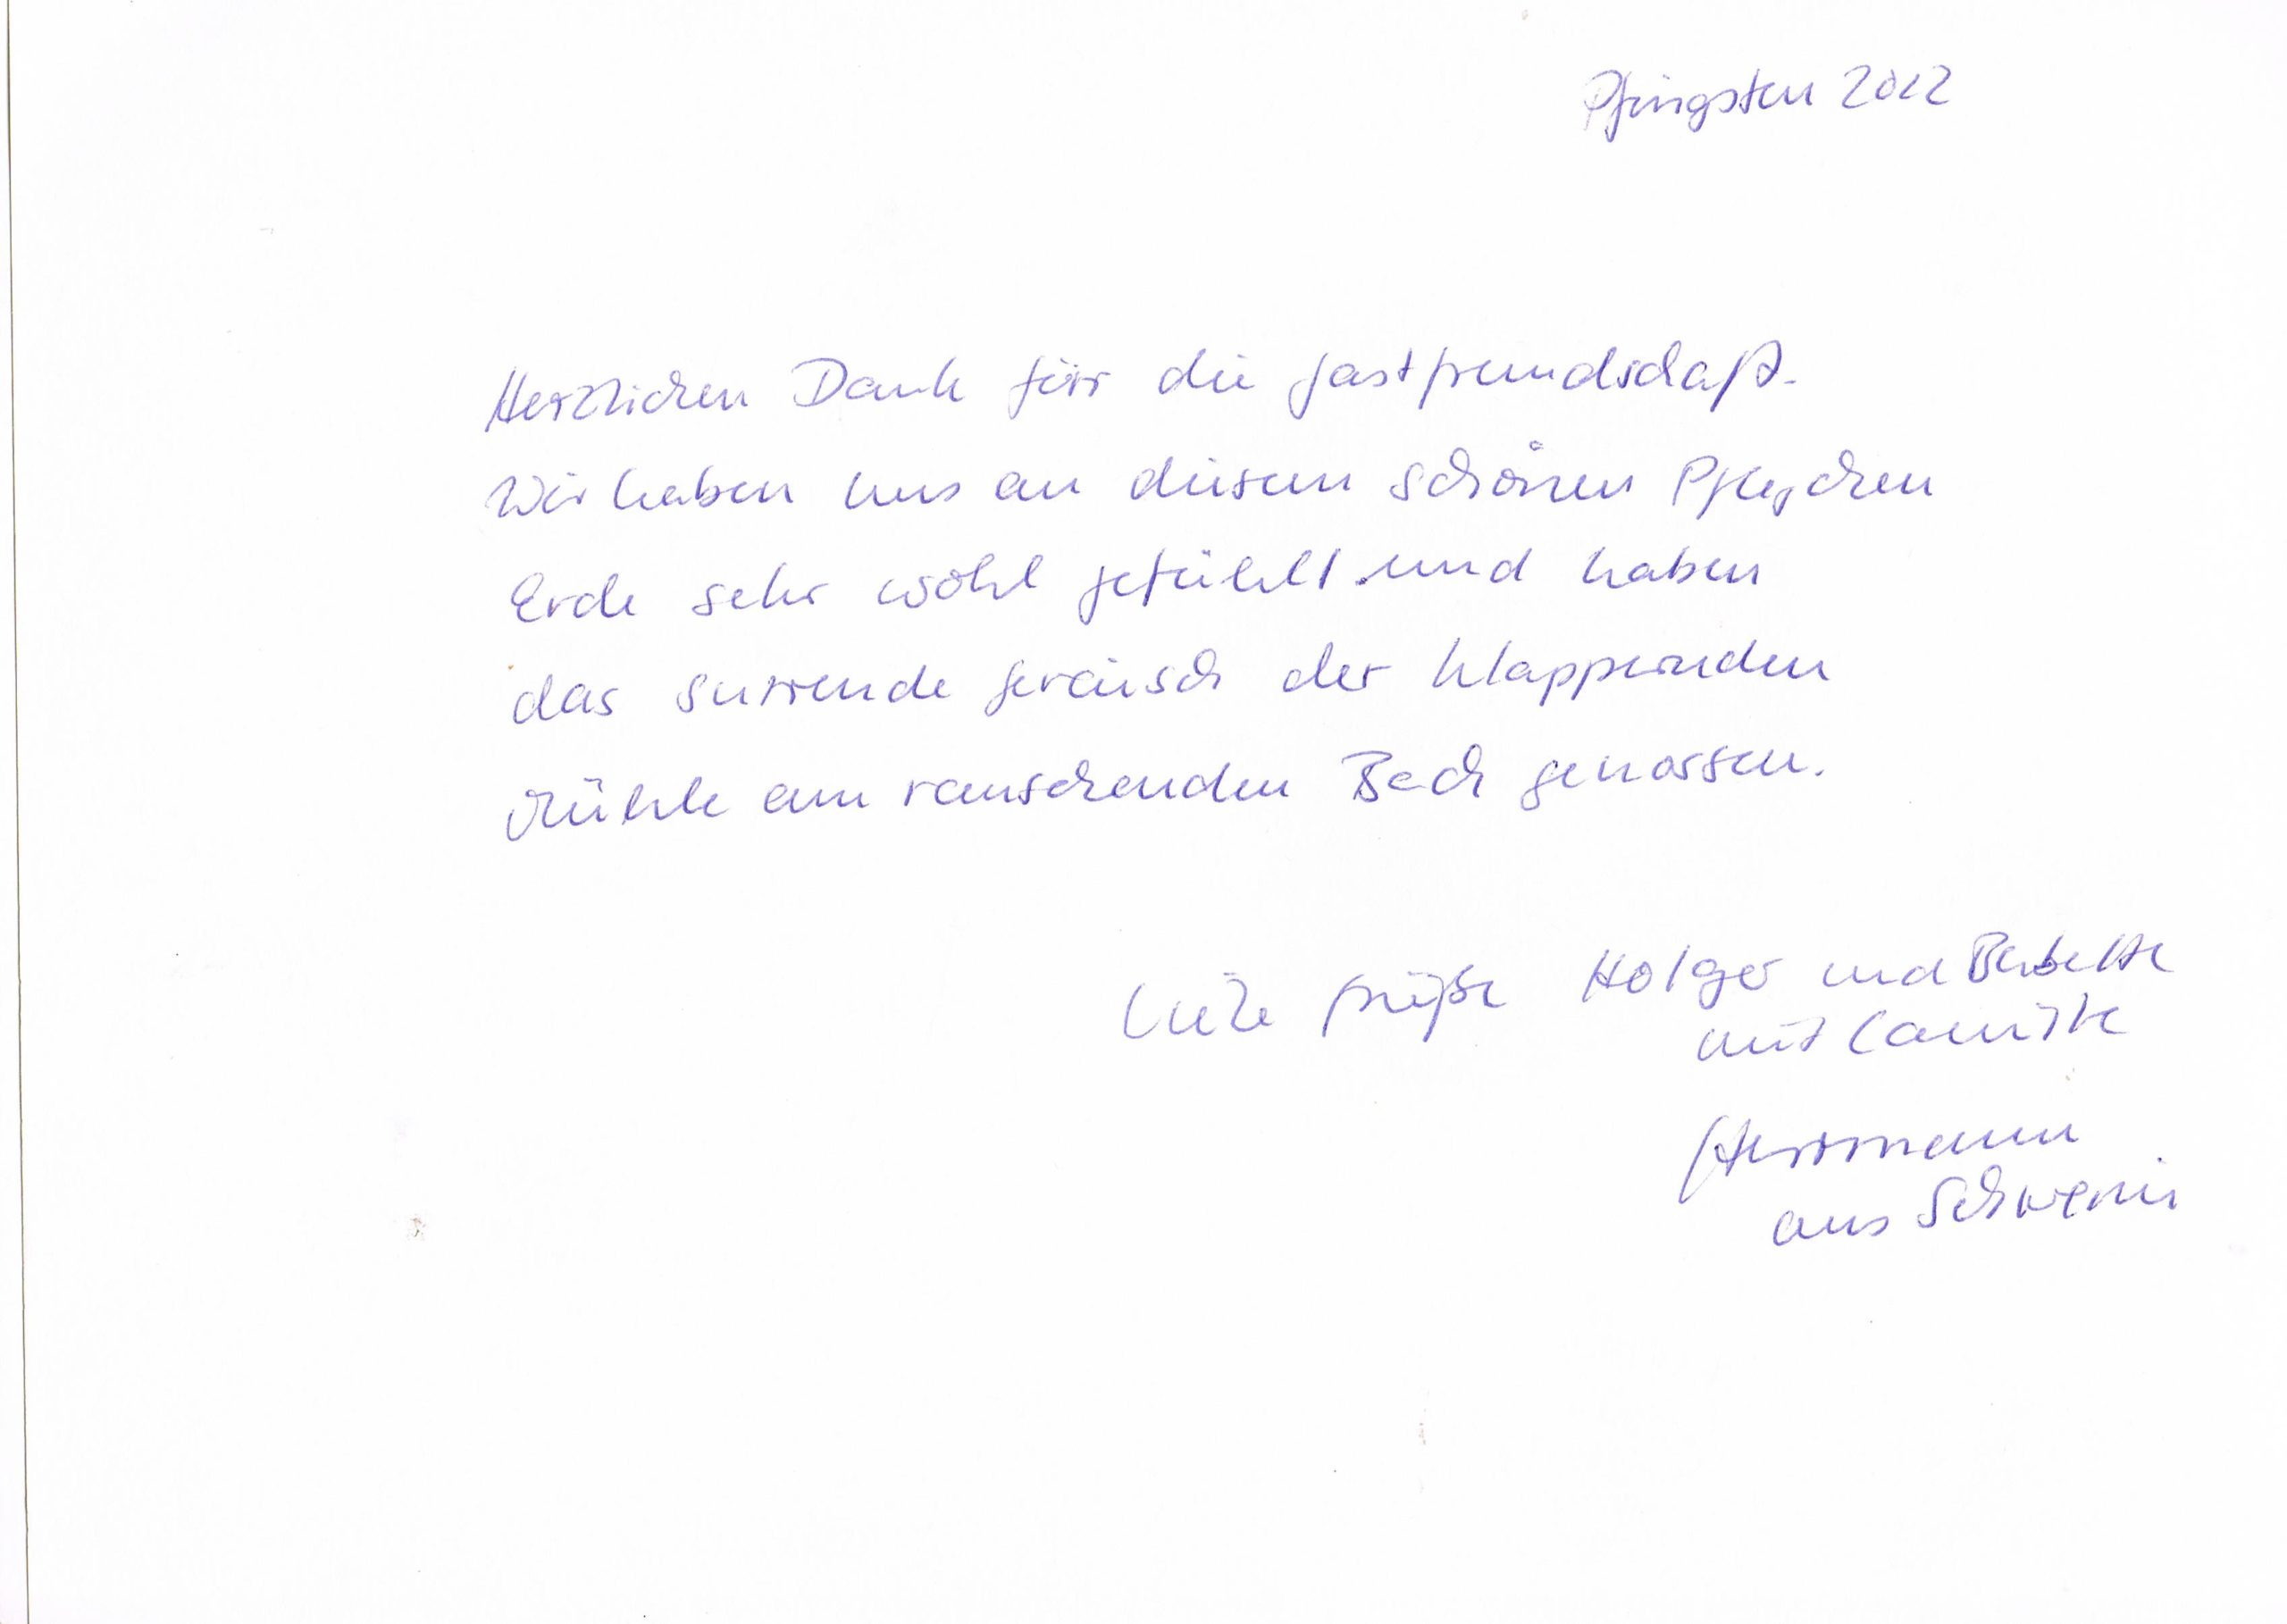 Pfingsten 2022
Herzlichen Dank für die Gastfreundschaft.
Wir haben uns an diesem schönen Fleckchen
Erde sehr wohl gefühlt und haben
das surrende Geräusch der klappernden
Mühle am rauschenden Bach genossen.
Liebe Grüße Holger und Babette
mit Camilla
Herrmann
aus Schwerin